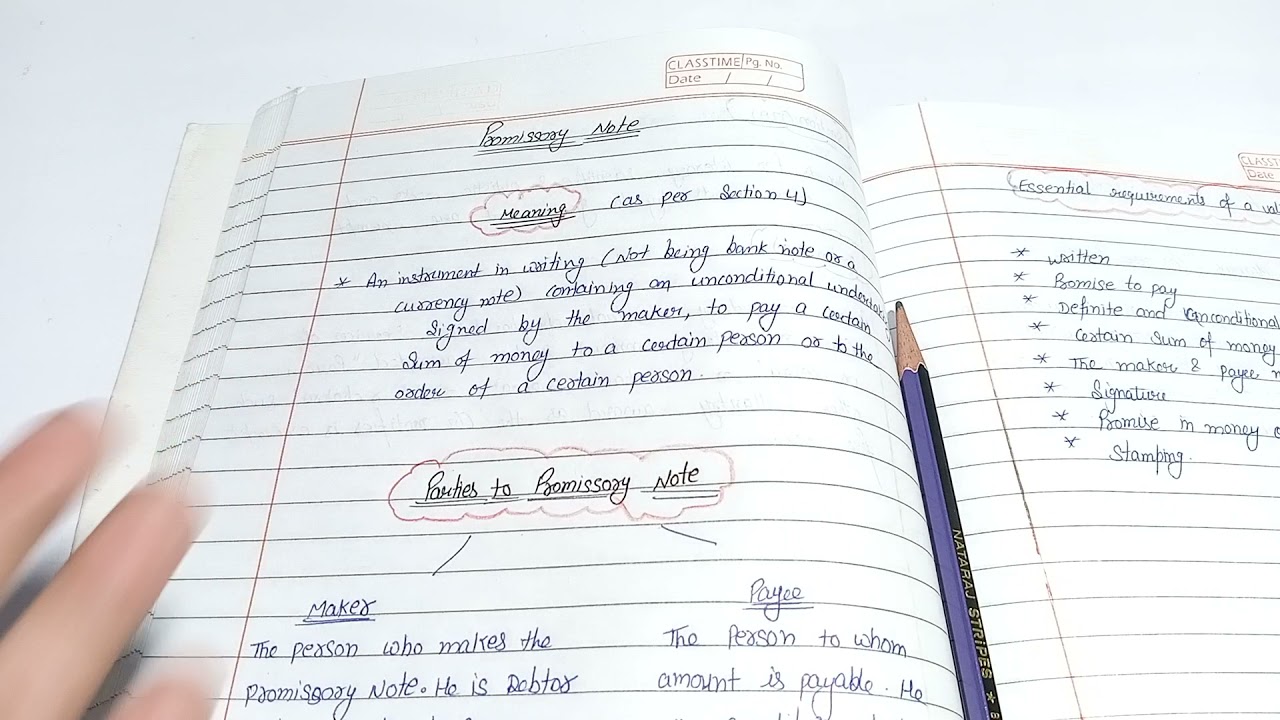 CLASSTIME Pg. No.
Date / /
Promissory Note
Meaning (as per Section 4)
* An instrument in writing (Not being bank note or a
currency note) containing an unconditional
Signed by the maker, to pay a certain
Sum of money to a certain person or to the
order of a certain person.
Parties to Promissory Note
Maker
The person who makes the
Promissory Note. He is Debtor
Payee
The Person to whom
amount is payable. He
Date
Essential requirements of a
* Written
* Promise to pay
* Definite and Unconditional
* Certain Sum of money
* The maker & payee
* Signature
* Promise in money
* Stamping.
NATARAJ STRIPES *